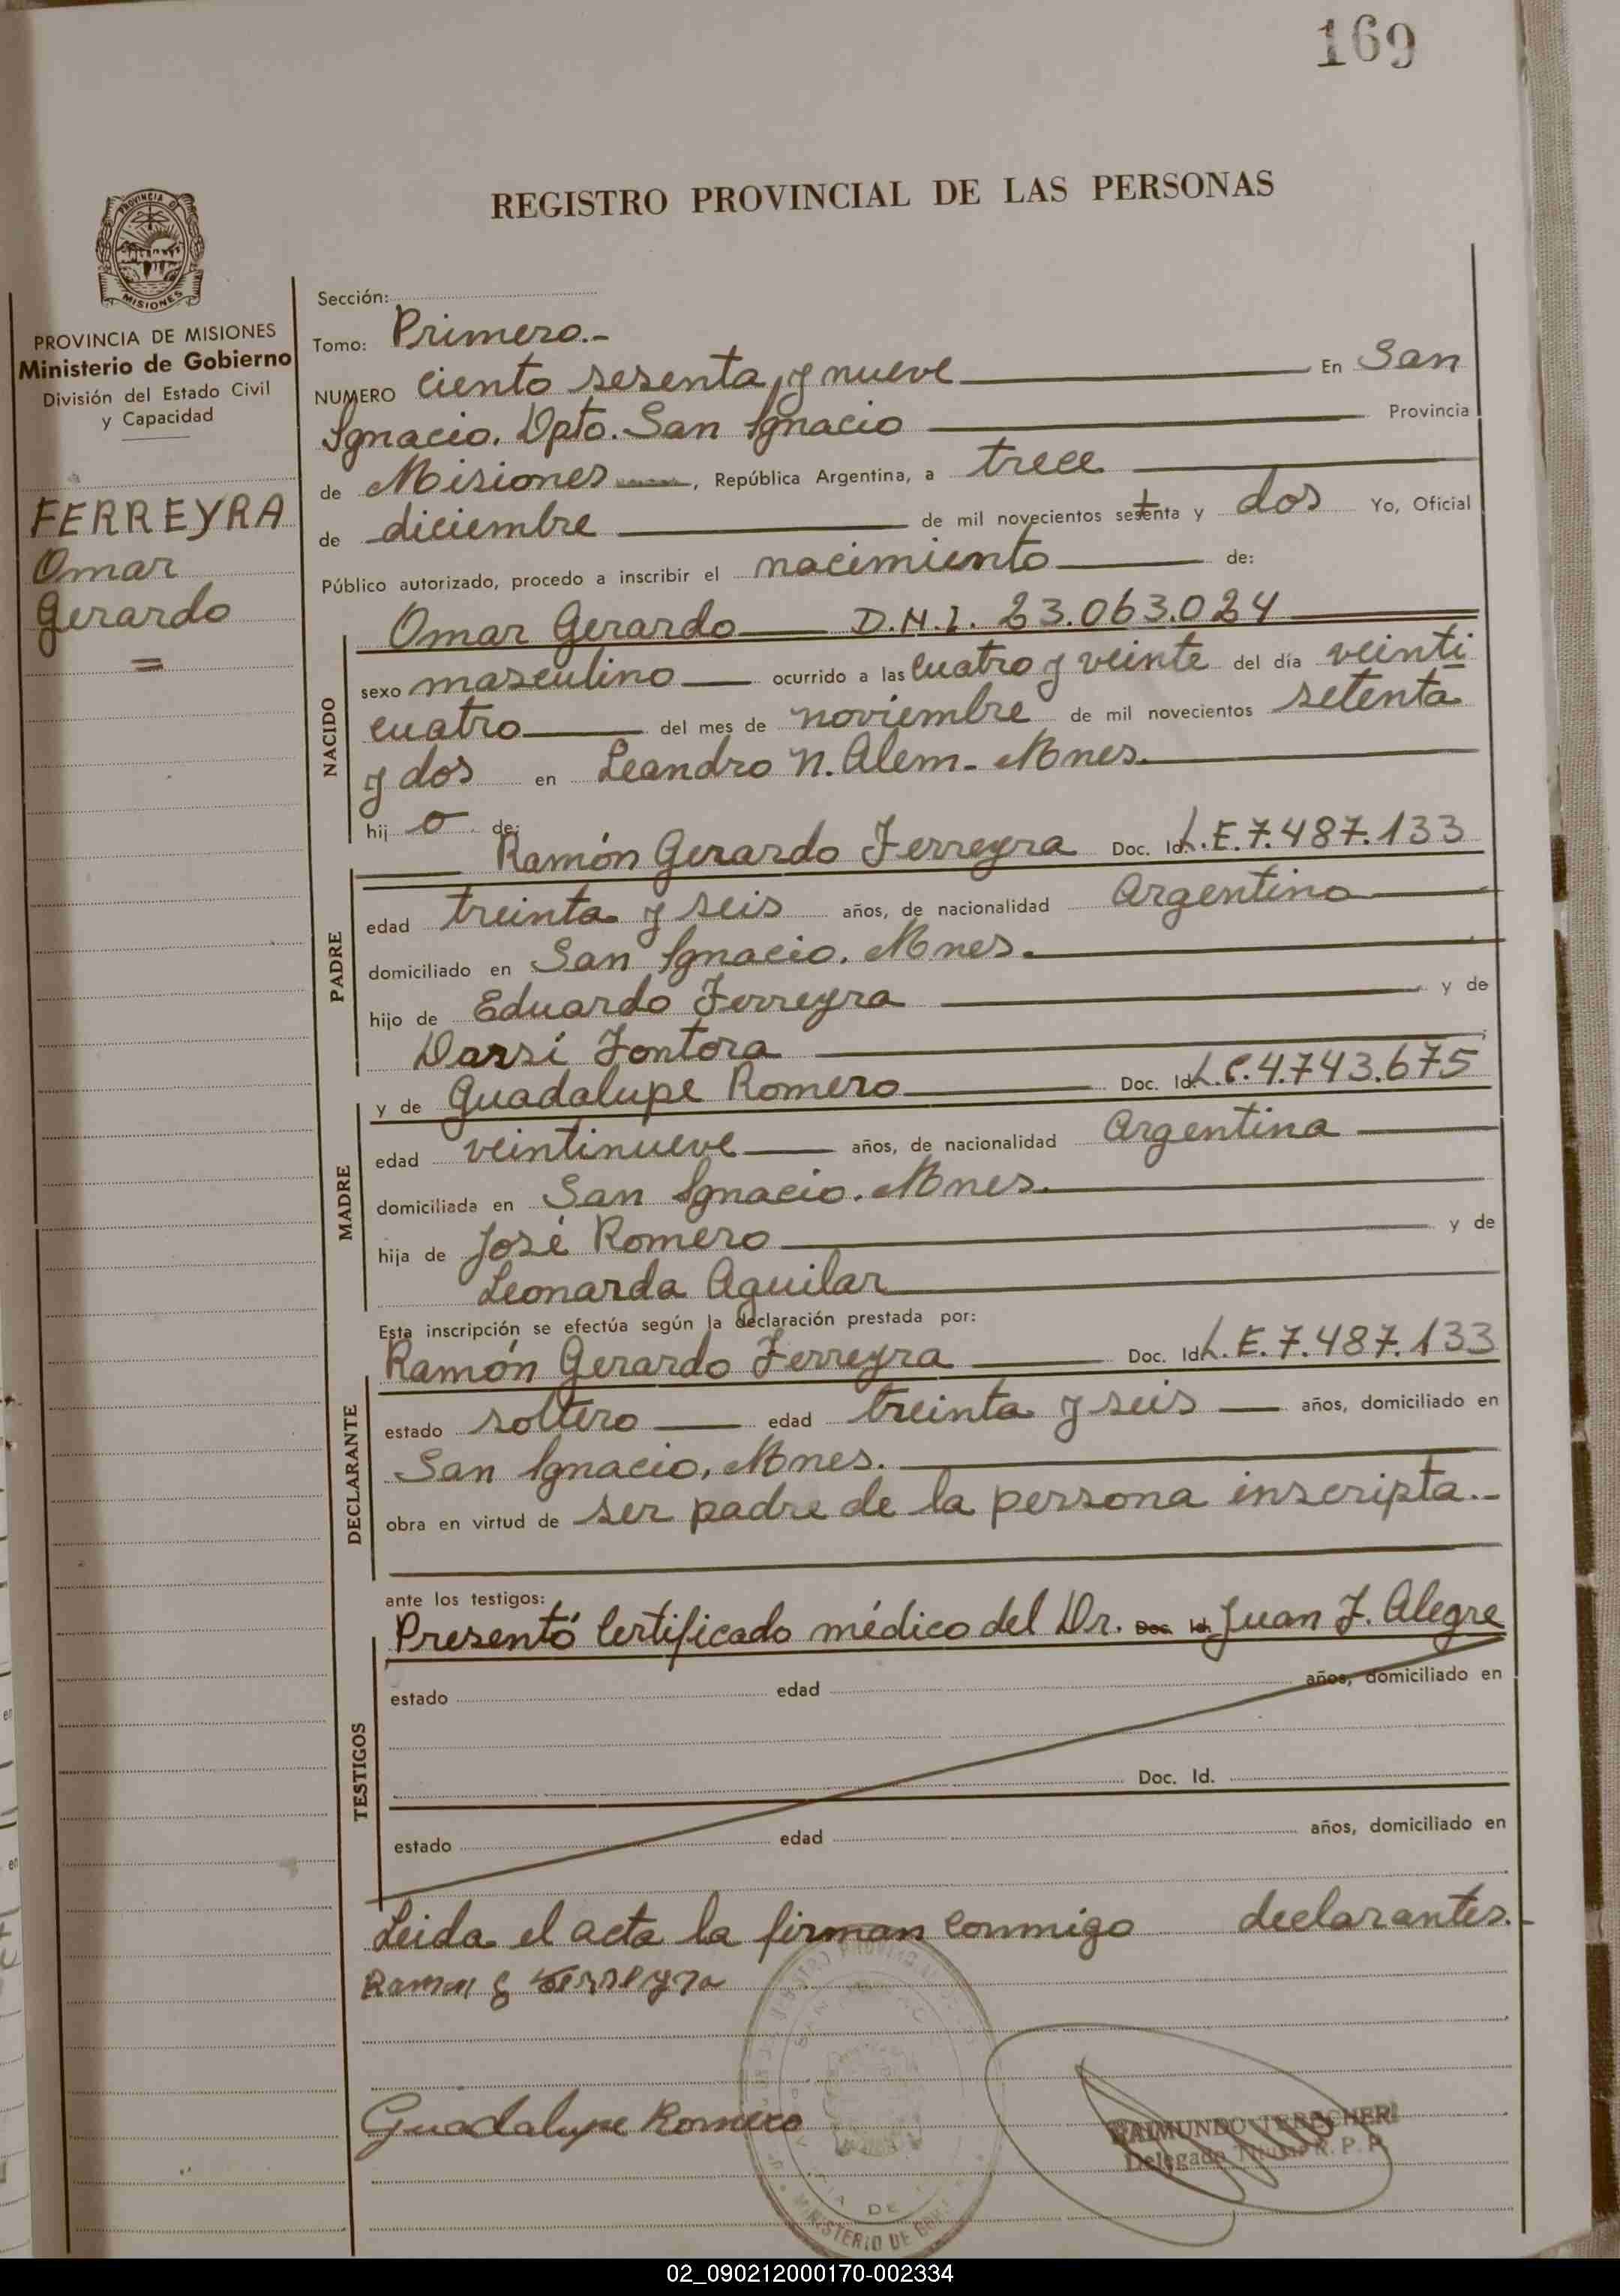 169
REGISTRO PROVINCIAL DE LAS PERSONAS
PROVINCIA DE
MISIONES
PROVINCIA DE MISIONES
Ministerio de Gobierno
División del Estado Civil
y Capacidad
FERREYRA
Omar
Gerardo
=
Sección:
Tomo: Primero.-
NUMERO ciento sesenta y nueve En San
Ignacio. Dpto. San Ignacio Provincia
de Misiones, República Argentina, a trece
de diciembre de mil novecientos setenta y dos Yo, Oficial
Público autorizado, procedo a inscribir el nacimiento de:
Omar Gerardo D.N.I. 23.063.024
NACIDO
sexo masculino ocurrido a las cuatro y veinte del día veinti
cuatro del mes de noviembre de mil novecientos setenta
y dos en Leandro N. Alem- Mnes.
hij o de:
Ramón Gerardo Ferreyra Doc. Id. L.E. 7.487.133
PADRE
edad treinta y seis años, de nacionalidad Argentino
domiciliado en San Ignacio. Mnes.
hijo de Eduardo Ferreyra y de
Darsí Fontora
y de Guadalupe Romero Doc. Id. L.C. 4.743.675
MADRE
edad veintinueve años, de nacionalidad Argentina
domiciliada en San Ignacio. Mnes.
hija de José Romero y de
Leonarda Aguilar
Esta inscripción se efectúa según la declaración prestada por:
Ramón Gerardo Ferreyra Doc. Id. L.E. 7.487.133
DECLARANTE
estado soltero edad treinta y seis años, domiciliado en
San Ignacio, Mnes.
obra en virtud de ser padre de la persona inscripta.-
ante los testigos:
Presentó Certificado médico del Dr. Doc. Id. Juan F. Alegre
TESTIGOS
estado edad años, domiciliado en
Doc. Id.
estado edad años, domiciliado en
Leida el acta la firman conmigo declarantes.-
Ramon G Ferreyra
Guadalupe Romero
MINISTERIO DE
RAIMUNDO
Delegado Titular R. P. P.
02_090212000170-002334